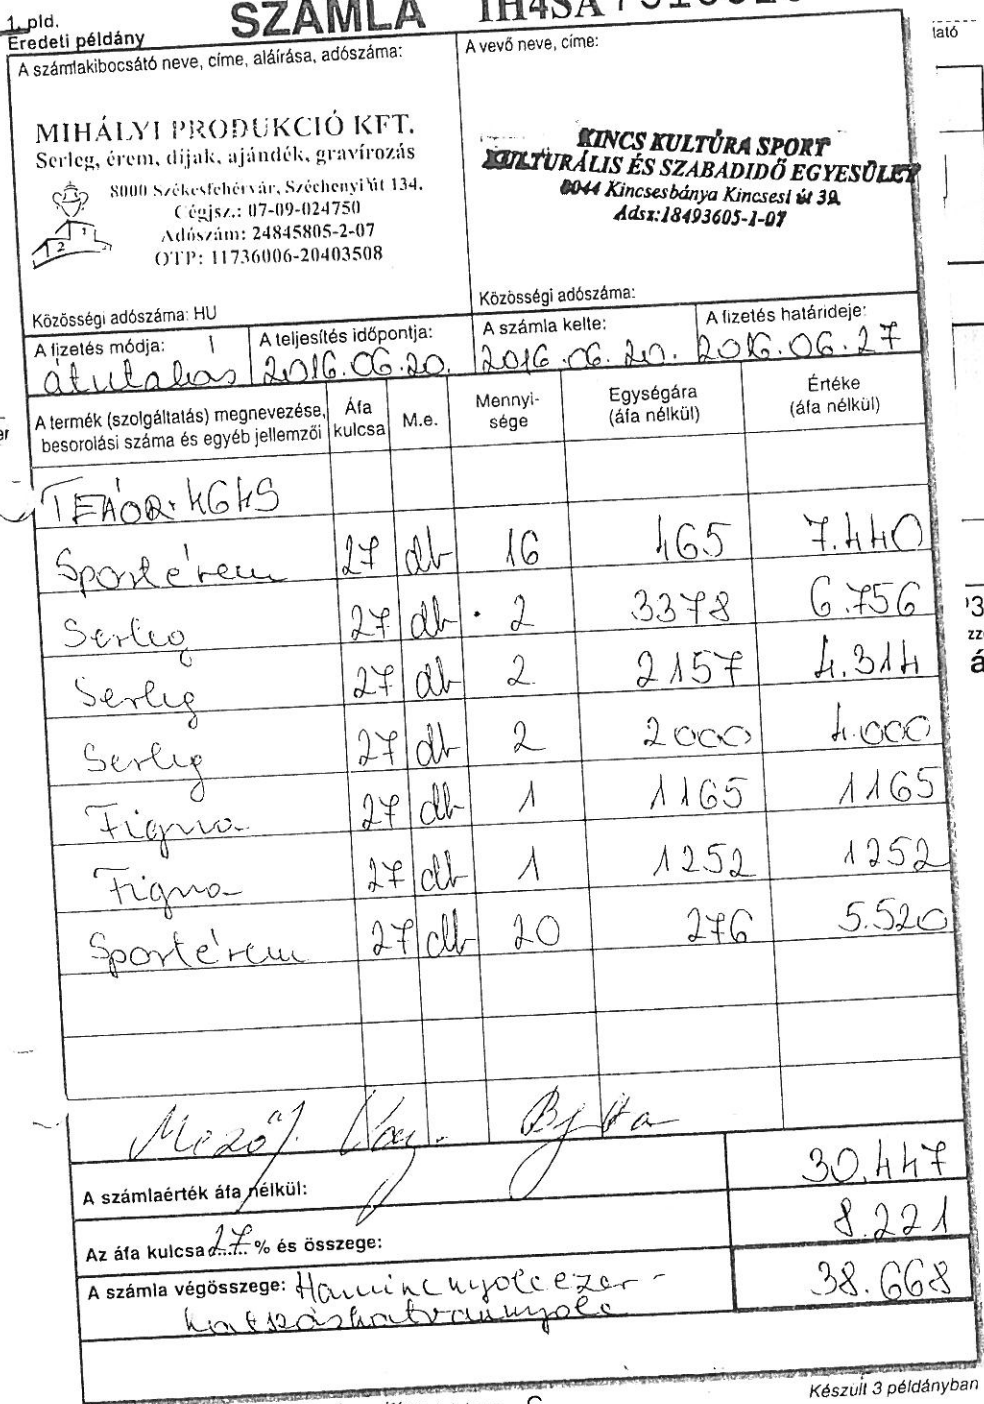 1. pld.
Eredeti példány
SZÁMLA
A számlakibocsátó neve, címe, aláírása, adószáma:
MIHÁLYI PRODUKCIÓ KFT.
Serleg, érem, díjak, ajándék, gravírozás
8000 Székesfehérvár, Széchenyi út 134.
Cégjsz.: 07-09-024750
Adószám: 24845805-2-07
OTP: 11736006-20403508
Közösségi adószáma: HU
A vevő neve, címe:
KINCS KULTÚRA SPORT
KULTURÁLIS ÉS SZABADIDŐ EGYESÜLET
8044 Kincsesbánya Kincsesi út 39.
Adsz:18493605-1-07
Közösségi adószáma:
A fizetés módja: átutalás
A teljesítés időpontja: 2016.06.20.
A számla kelte: 2016.06.20.
A fizetés határideje: 2016.06.27
A termék (szolgáltatás) megnevezése, besorolási száma és egyéb jellemzői Áfa kulcsa M.e. Mennyisége Egységára (áfa nélkül) Értéke (áfa nélkül)
TEÁOR: 4649
Sportérem 27 db 16 465 7.440
Serleg 27 db 2 3378 6.756
Serleg 27 db 2 2157 4.314
Serleg 27 db 2 2000 4.000
Figura 27 db 1 1165 1165
Figura 27 db 1 1252 1252
Sportérem 27 db 20 276 5.520
A számlaérték áfa nélkül: 30.447
Az áfa kulcsa 27 % és összege: 8.221
A számla végösszege: Harmincnyolcezer- 38.668
hatszázhatvannyolc
Készült 3 példányban